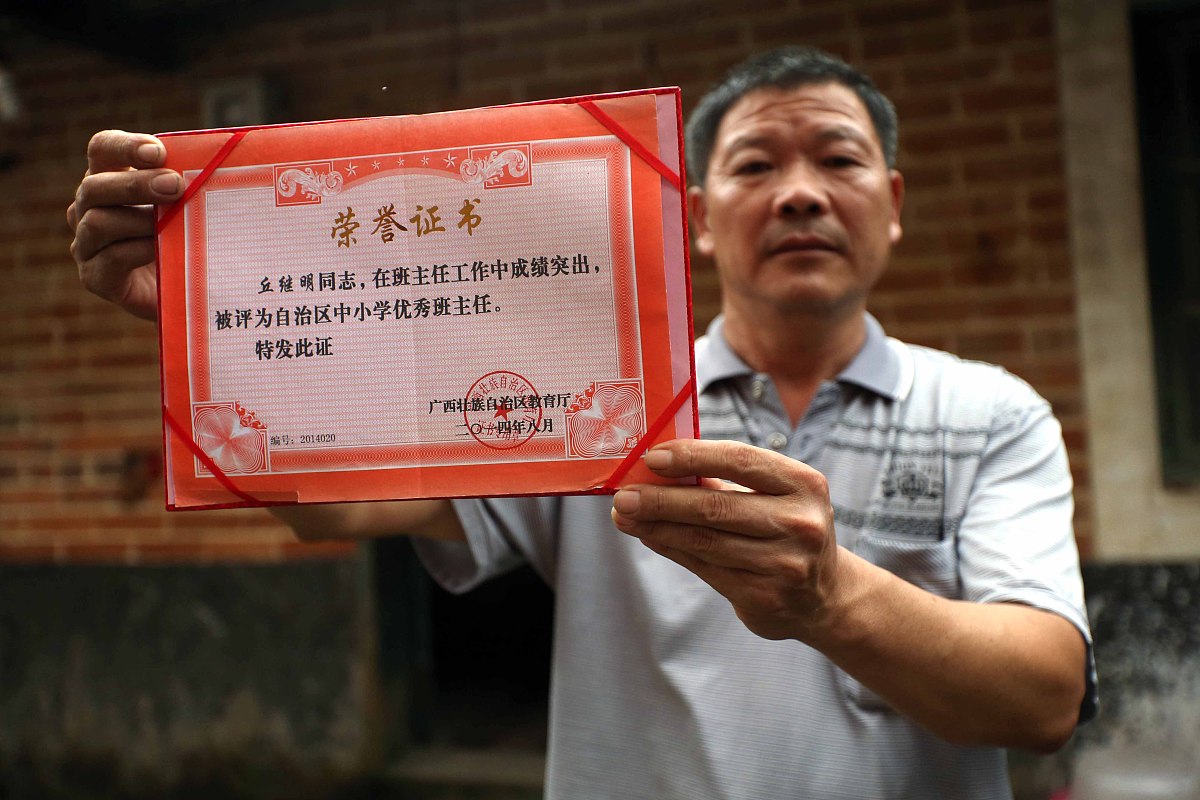 荣誉证书
丘继明同志，在班主任工作中成绩突出，
被评为自治区中小学优秀班主任。
特发此证
广西壮族自治区教育厅
二〇一四年八月
编号：2014020